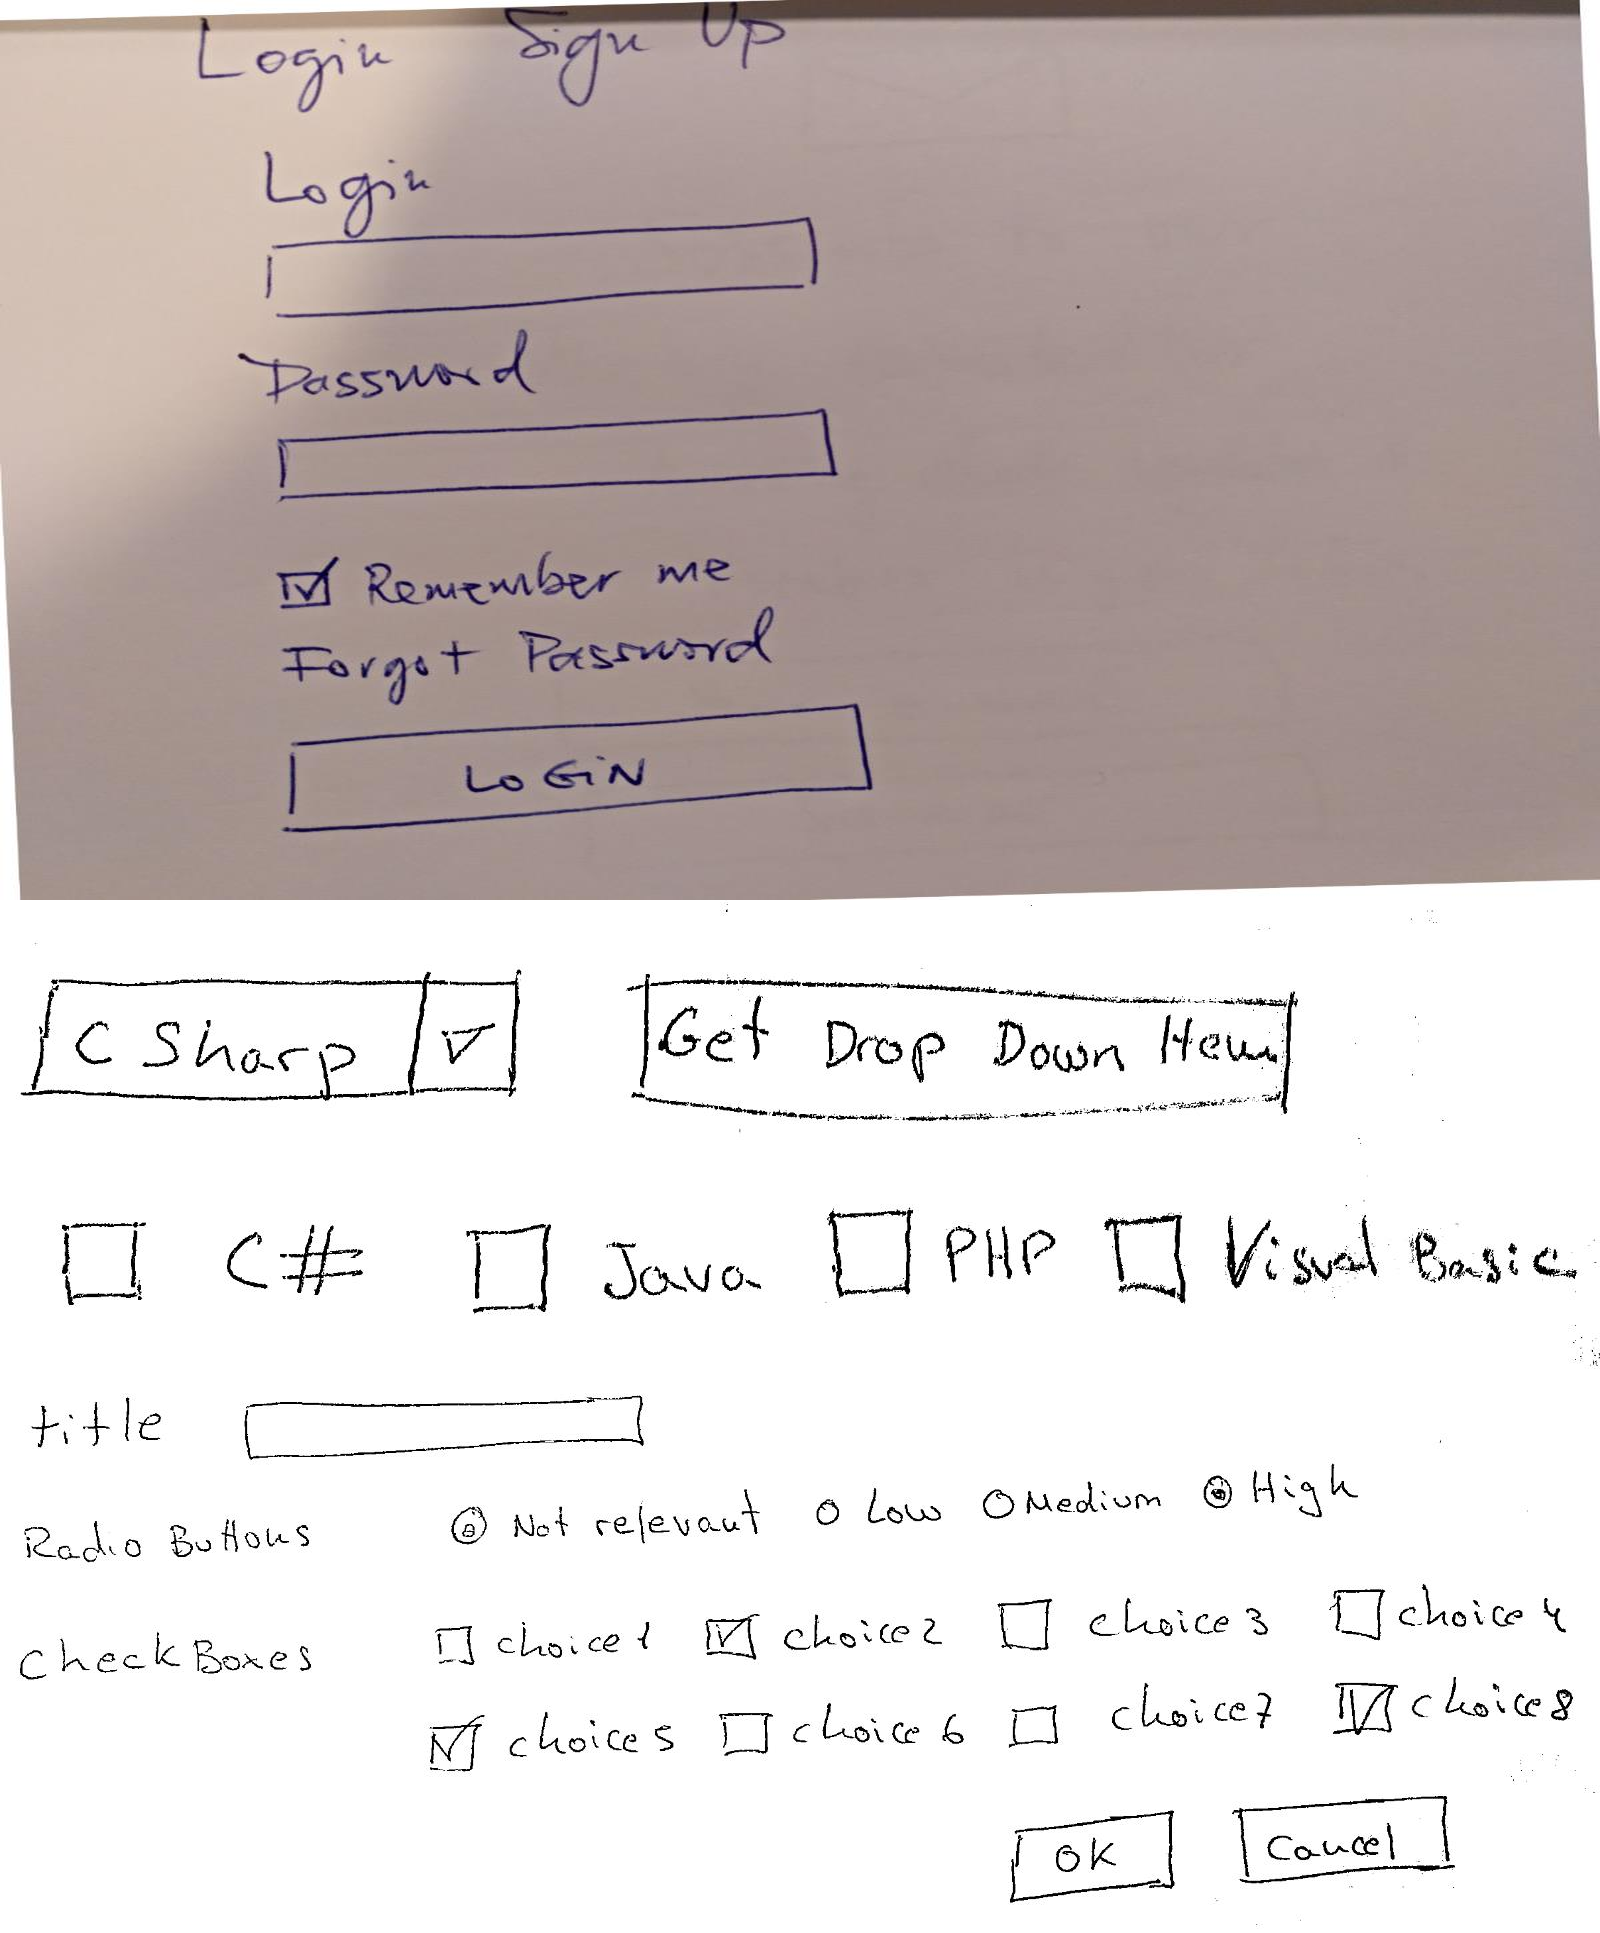 Login Sign Up
Login
Password
Remember me
Forgot Password
LOGIN
C Sharp Get Drop Down Item
C# Java PHP Visual Basic
title
Radio Buttons Not relevant Low Medium High
CheckBoxes choice1 choice2 choice3 choice4
choice5 choice6 choice7 choice8
OK Cancel